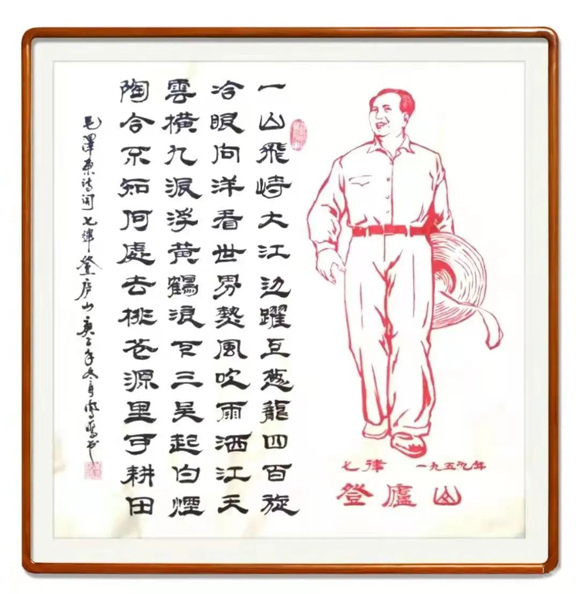 七律 一九五九年
登廬山
一山飛峙大江边躍上葱龍四百旋
冷眼向洋看世界熱風吹雨洒江天
雲橫九派浮黄鶴浪下三吴起白煙
陶令不知何處去桃花源里可耕田
毛澤东诗词七律登庐山庚子年冬月書